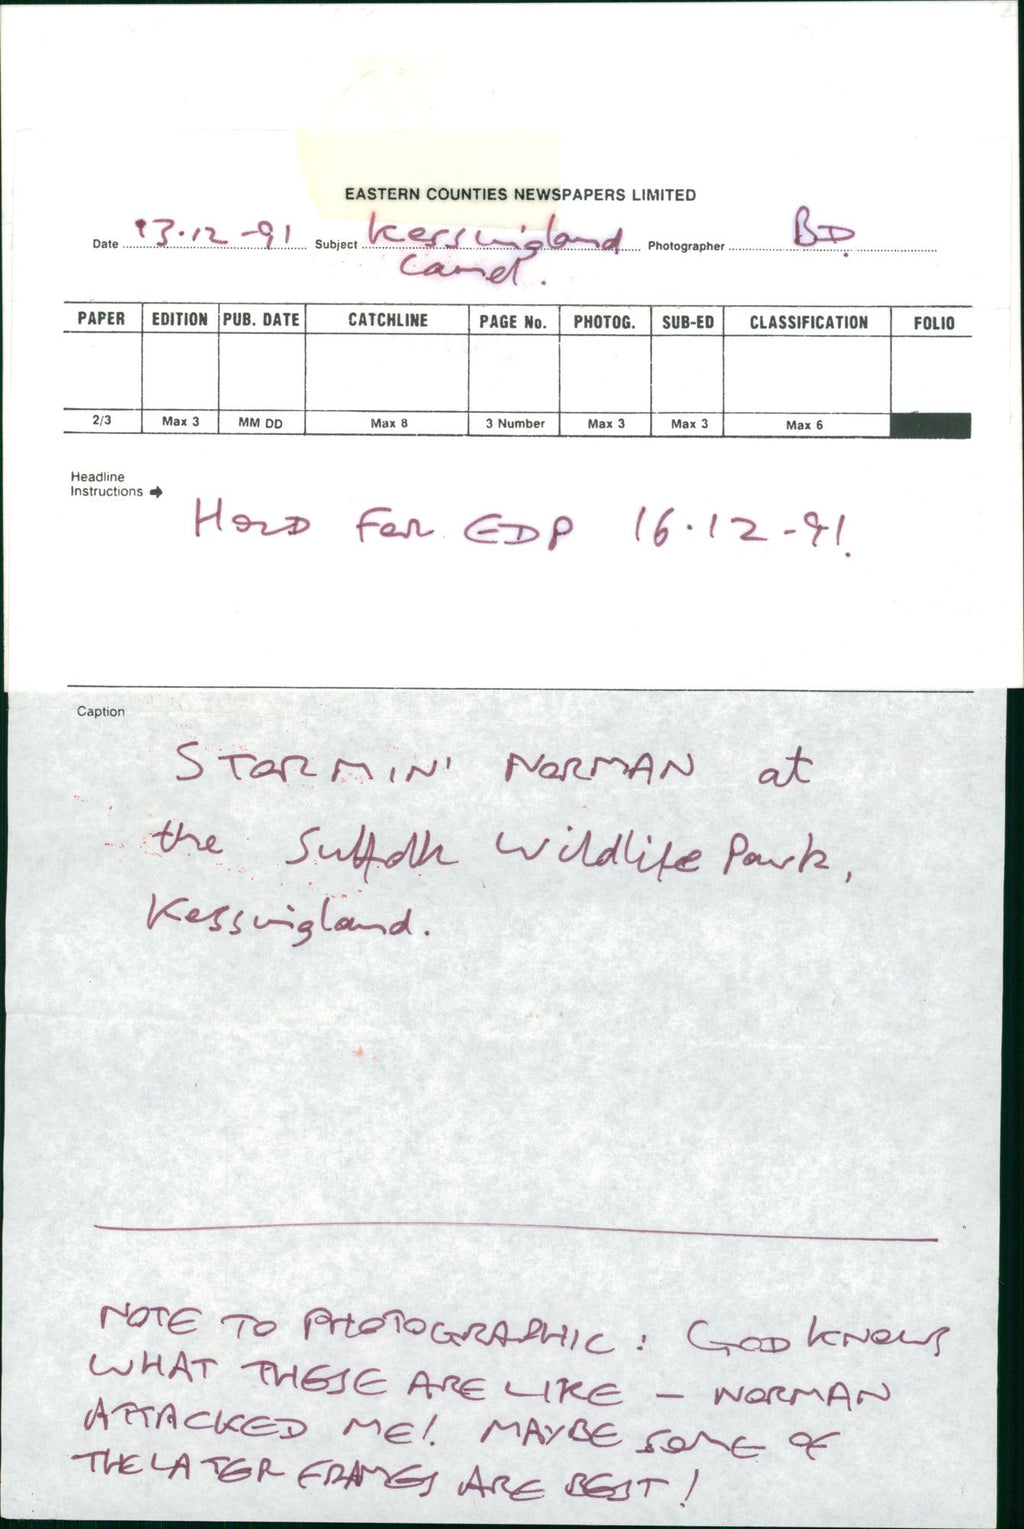 EASTERN COUNTIES NEWSPAPERS LIMITED
Date 13.12-91 Subject Kessingland Photographer BD.
Camel.
PAPER EDITION PUB. DATE CATCHLINE PAGE No. PHOTOG. SUB-ED CLASSIFICATION FOLIO
2/3 Max 3 MM DD Max 8 3 Number Max 3 Max 3 Max 6
Headline
Instructions
HOLD FOR EDP 16.12-91.
Caption
STORMIN' NORMAN at
the Suffolk Wildlife Park,
Kessingland.
NOTE TO PHOTOGRAPHIC: GOD KNOWS
WHAT THESE ARE LIKE - NORMAN
ATTACKED ME! MAYBE SOME OF
THE LATER FRAMES ARE BEST!